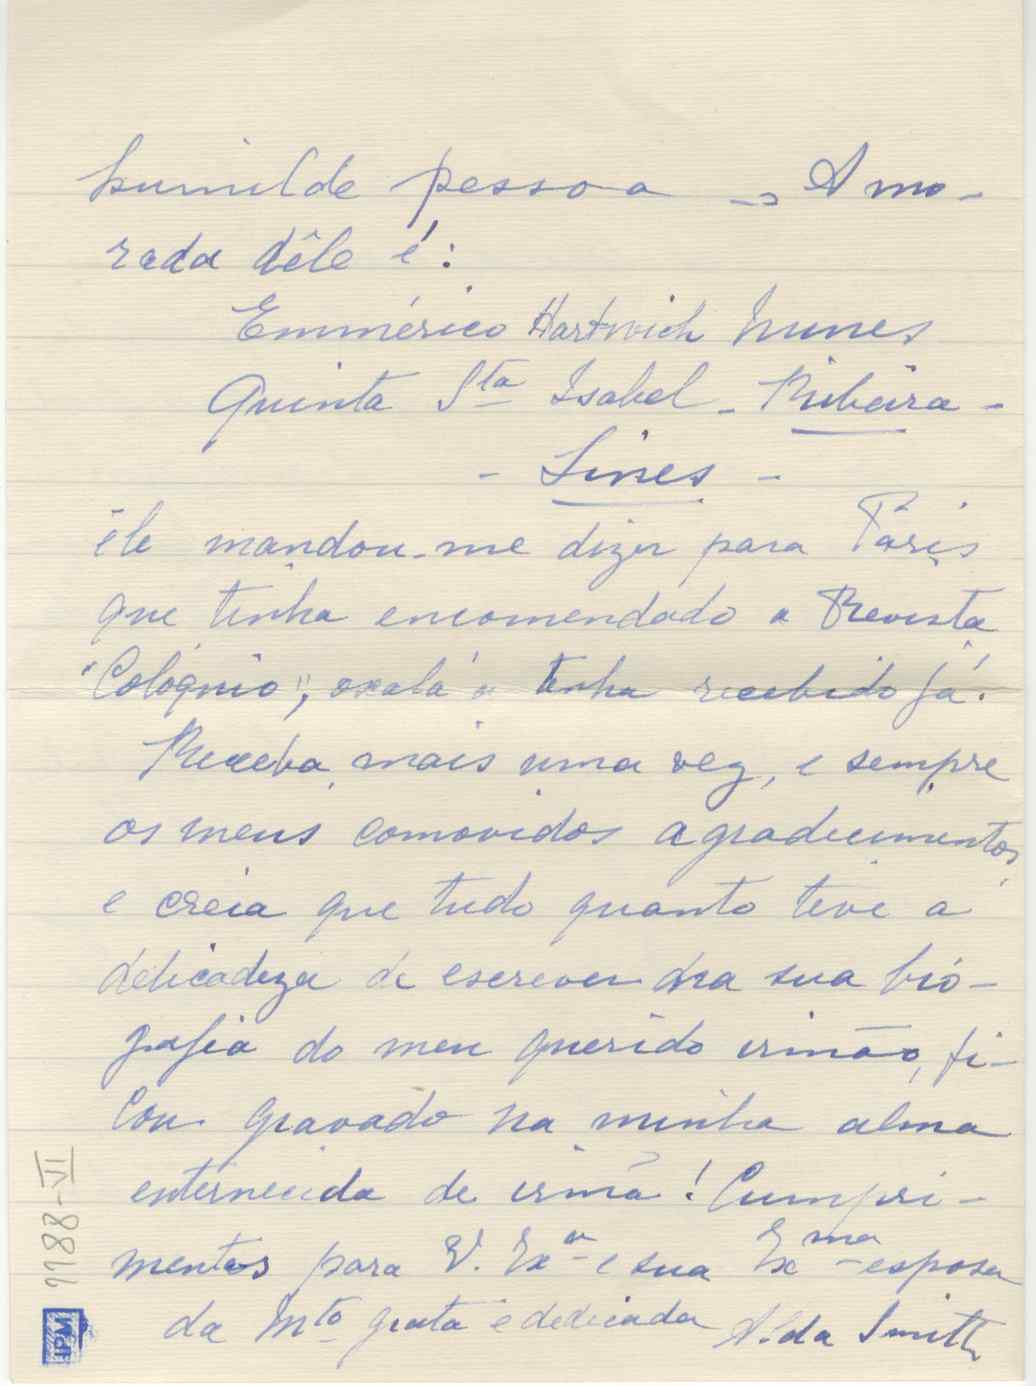 humilde pessoa -, A mo-
rada dêle é:
Emmérico Hartwich Nunes
Quinta Sta Isabel - Ribeira -
- Sines -
êle mandou-me dizer para Paris
que tinha encomendado a Revista
"Colóquio", oxalá a tenha recebido já.
Receba, mais uma vez, e sempre
os meus comovidos agradecimentos,
e creia que tudo quanto teve a
delicadeza de escrever na sua bio-
grafia do meu querido irmão, fi-
cou gravado na minha alma
enternecida de irmã! Cumpri-
mentos para V. Exa e sua Exma esposa
da Mto grata e dedicada Alda Smith
1188-VI
IPM